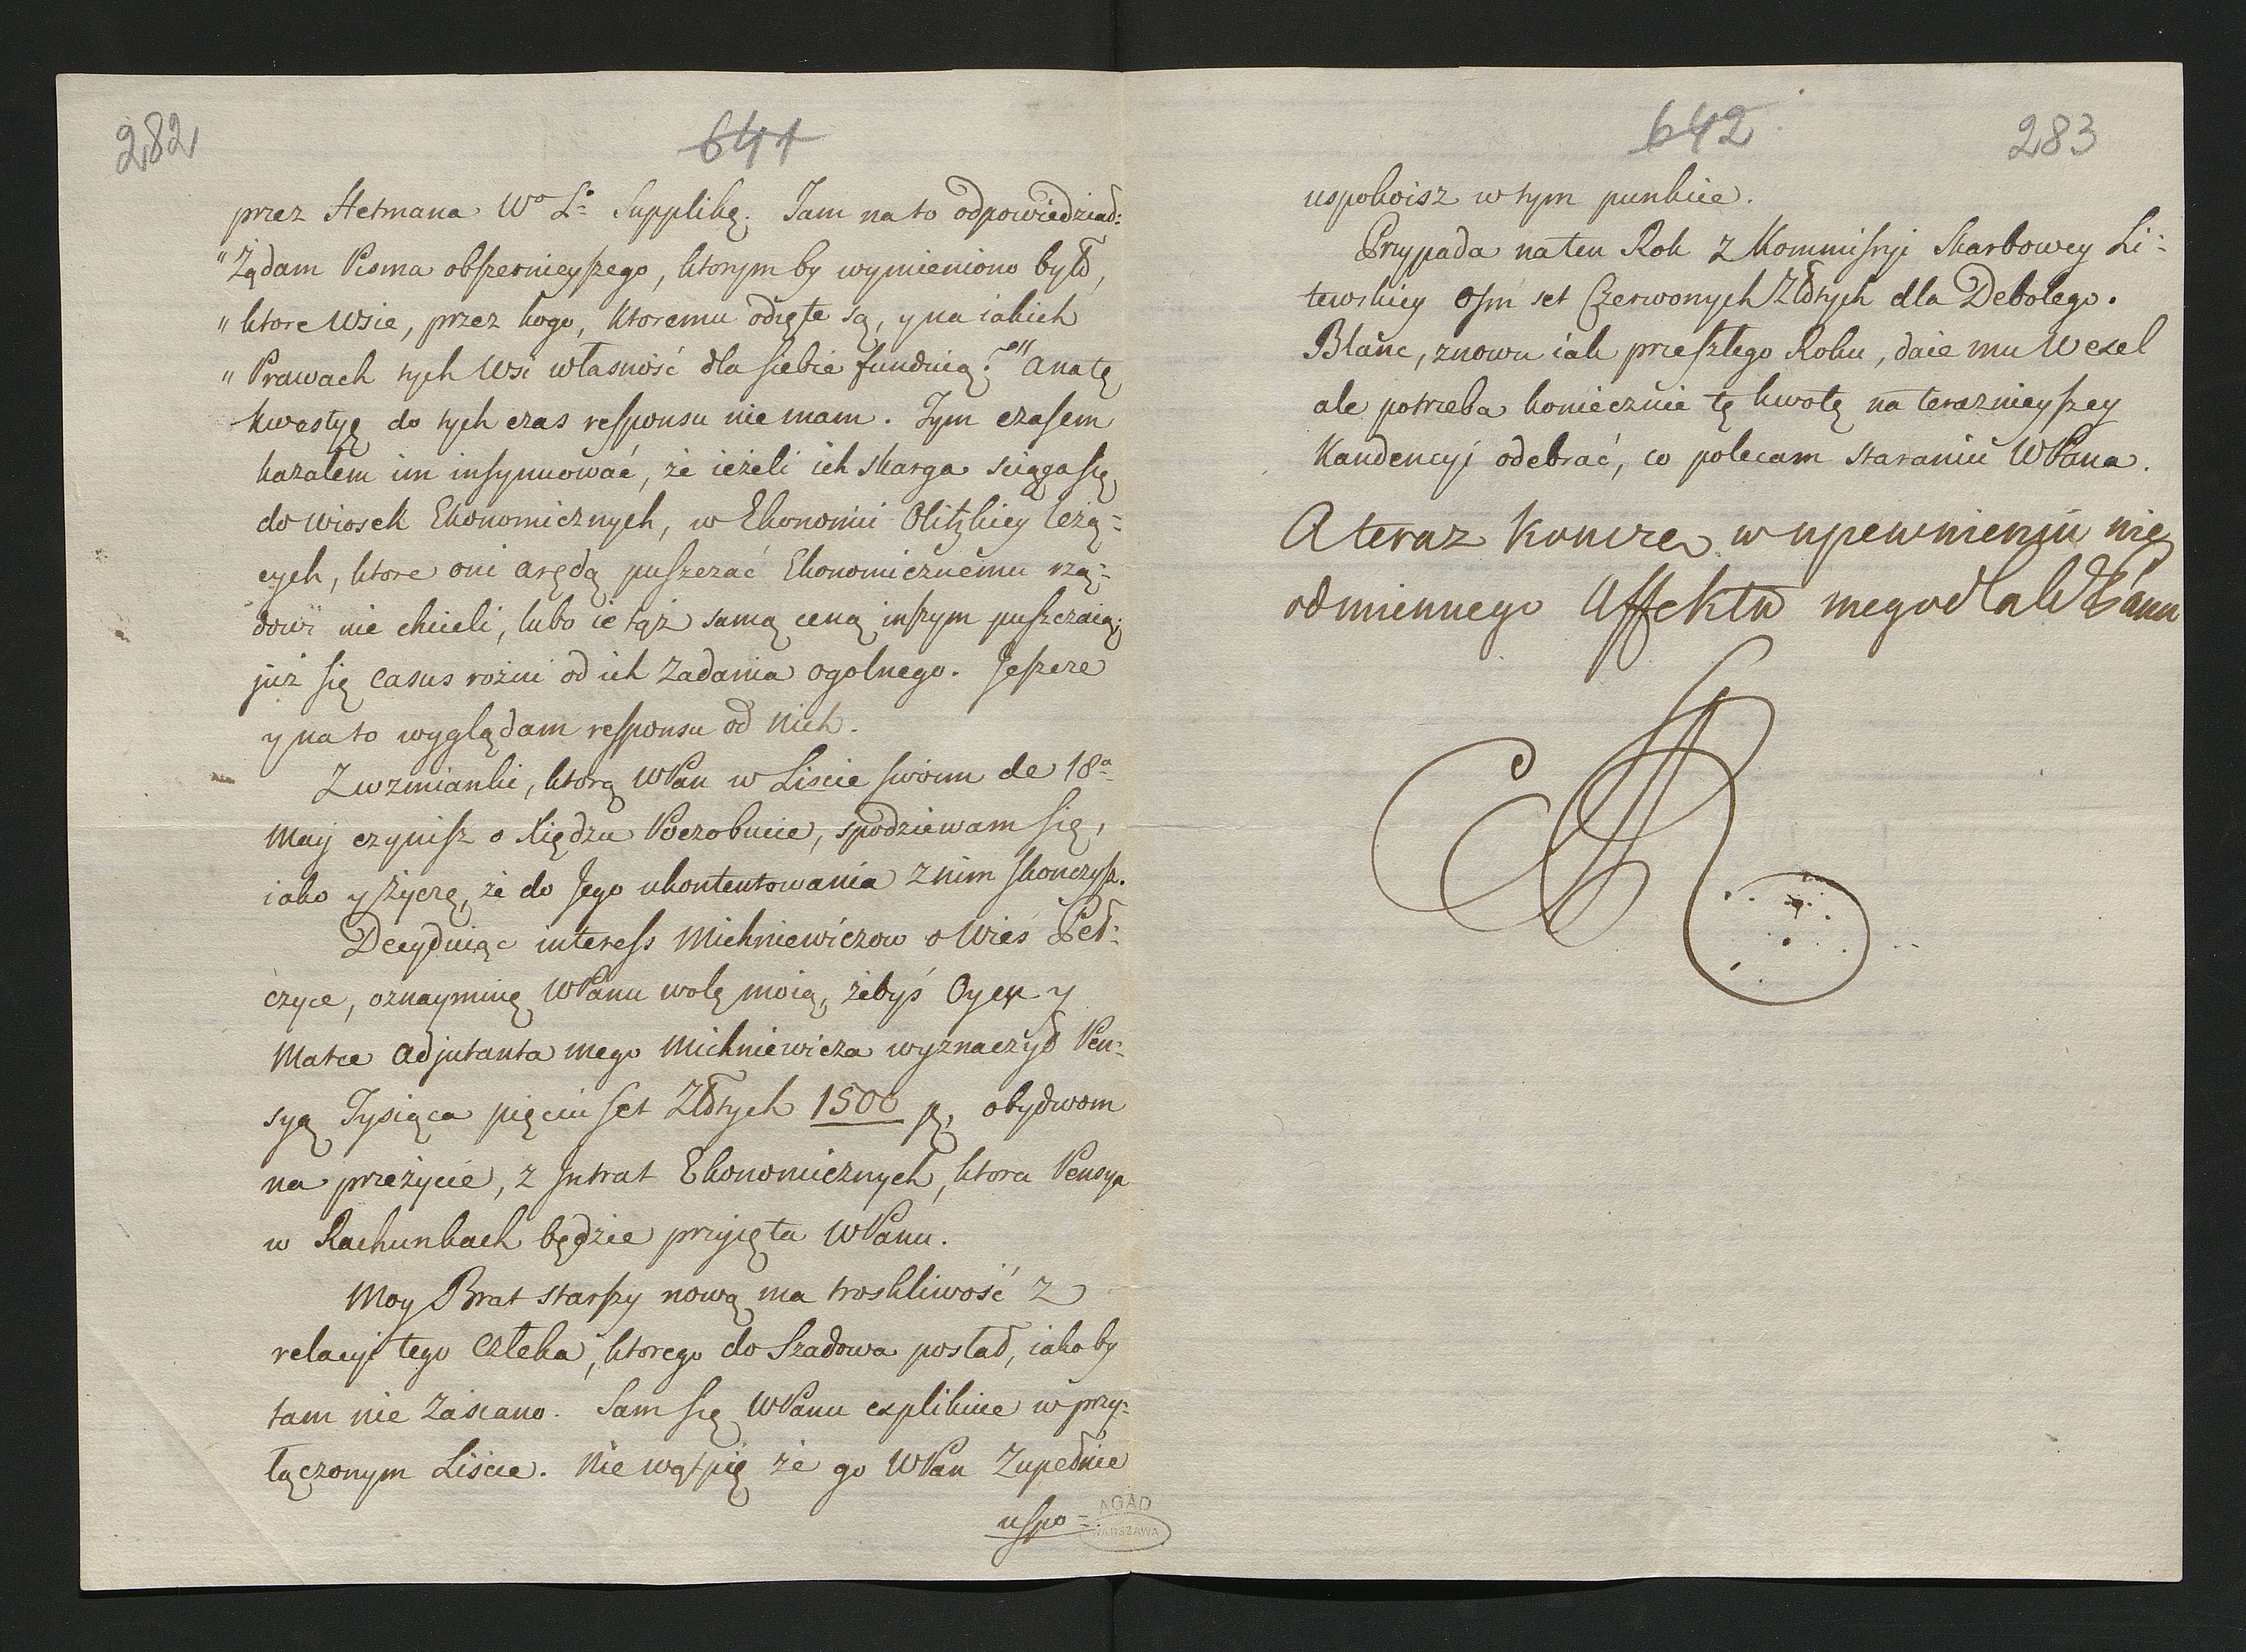 282
641
przez Hetmana Wo Lo Supplikę. Jam na to odpowiedział:
"Żądam Pisma obszernieyszego, ktorym by wymieniono było,
"ktore Wsie, przez kogo, ktoremu odięte są, y na iakich
"Prawach tych Wsi własność dla siebie funduią?" a na tę
kwestyę do tych czas responsu nie mam. Tym czasem
kazałem im insynuować, że ieżeli ich skarga sciąga się
do Wiosek Ekonomicznych, w Ekonomii Olitskiey leżą=
cych, ktore oni arędą puszczać Ekonomicznemu rzą=
dowi nie chcieli, lubo ie tąż samą ceną inszym puszczaią;
już się casus rożni od ich Zadania ogolnego. Jeszcze
y na to wyglądam responsu od nich.
Z wzmianki, ktorą WPan w Liscie swoim de 18a
Maij czynisz o Xiędzu Poczobucie, spodziewam się,
iako y życzę, że do Jego ukontentowania z nim skonczysz.
Decyduiąc interess Michniewiczow o Wieś Peł=
czyce, oznaymię WPanu wolę moią, żebyś Oycu y
Matce Adjutanta mego Michniewicza wyznaczył Pen=
syą Tysiąca pięciu set Złotych 1500 f, obydwom
na przeżycie, z Jntrat Ekonomicznych, ktora Pensya
w Rachunkach będzie przyięta WPanu.
Moy Brat starszy nową ma troskliwość z
relacyi tego człeka, ktorego do Szadowa posłał, iakoby
tam nie zasiano. Sam się WPanu explikuie w przy=
łączonym Liscie. Nie wątpię że go WPan Zupełnie
uspo=
AGAD
WARSZAWA
642
283
uspokoisz w tym punkcie.
Przypada na ten Rok z Kommissyi Skarbowey Li=
tewskiey Osm set Czerwonych Złotych dla Debolego.
Blanc, znowu iak przeszłego Roku, daie mu Wexel
ale potrzeba koniecznie tę kwotę na terazniejszey
Kandencyi odebrać, co polecam staraniu WPana.
A teraz koncze w upewnieniu nie
odmiennego Affektu mego dla WPana
SAR